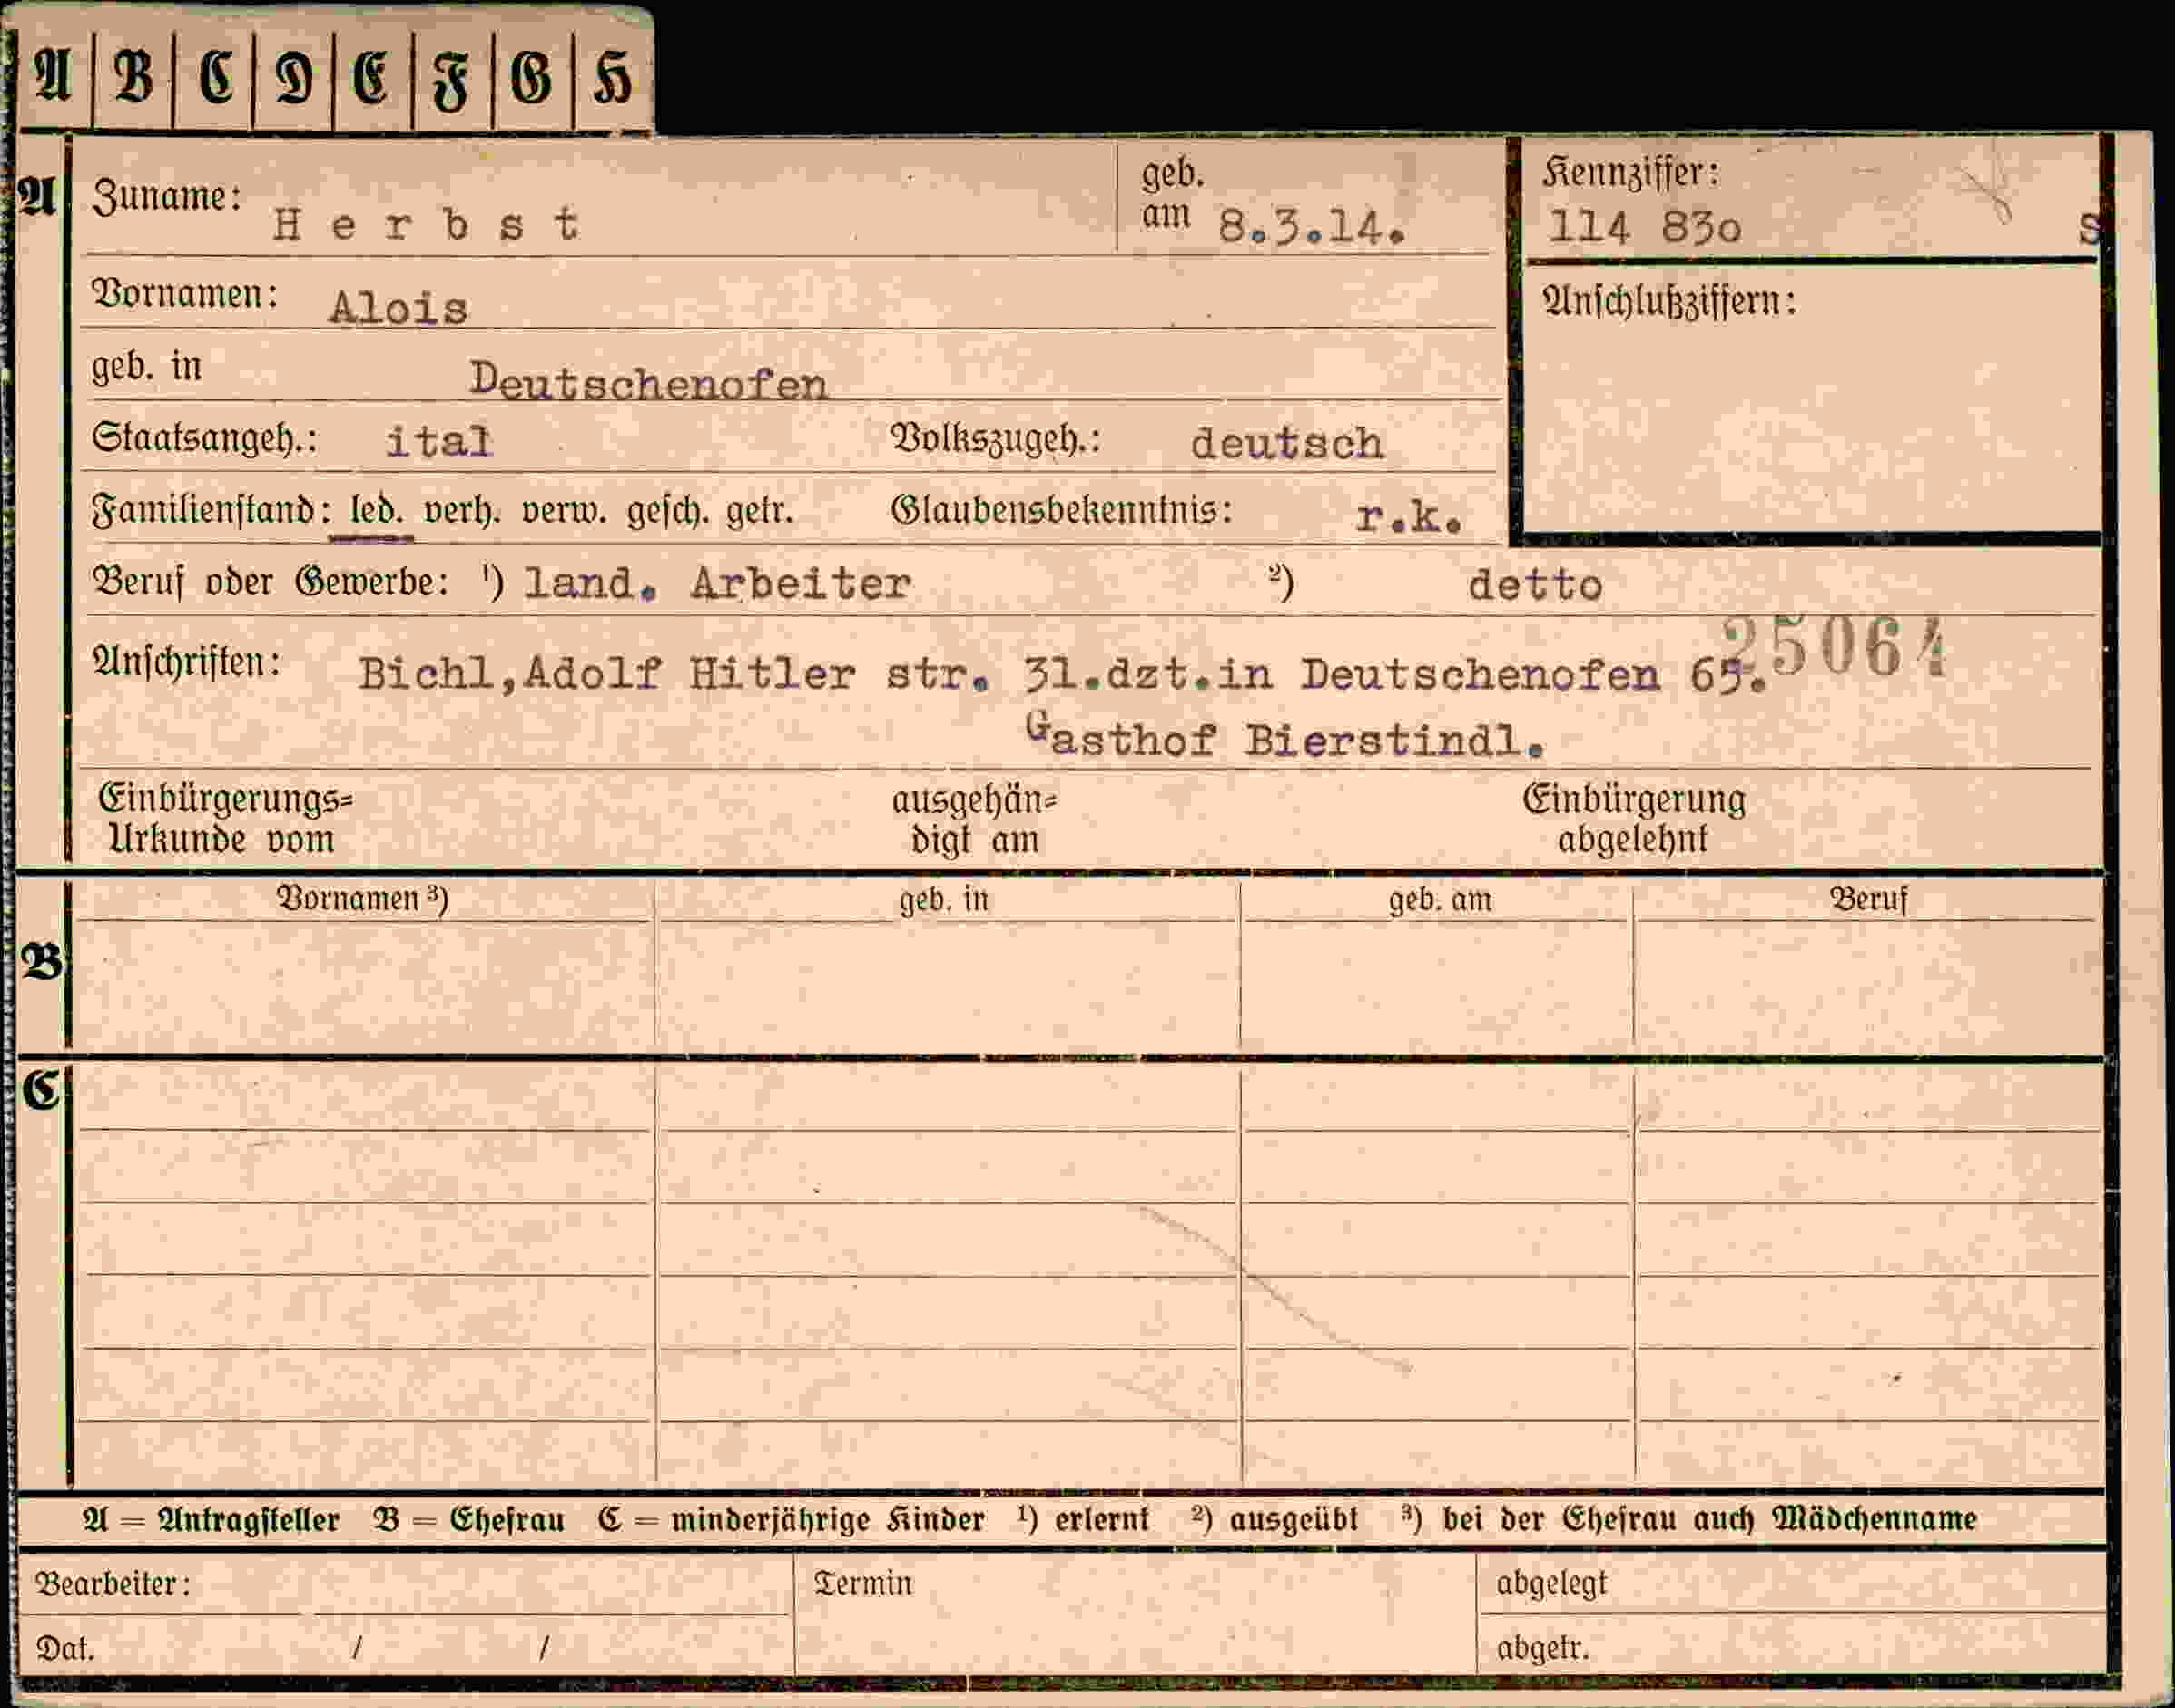 A B C D E F G H
A Zuname: Herbst geb. am 8.3.14. Kennziffer: 114 830 S
Vornamen: Alois Anschlußziffern:
geb. in Deutschenofen
Staatsangeh.: ital Volkszugeh.: deutsch
Familienstand: led. verh. verw. gesch. getr. Glaubensbekenntnis: r.k.
Beruf oder Gewerbe: ¹) land. Arbeiter ²) detto
25064
Anschriften: Bichl,Adolf Hitler str. 31.dzt.in Deutschenofen 65.
Gasthof Bierstindl.
Einbürgerungs= ausgehän= Einbürgerung
Urkunde vom digt am abgelehnt
Vornamen ³) geb. in geb. am Beruf
B
C
A = Antragsteller B = Ehefrau C = minderjährige Kinder ¹) erlernt ²) ausgeübt ³) bei der Ehefrau auch Mädchenname
Bearbeiter: Termin abgelegt
Dat. / / abgetr.